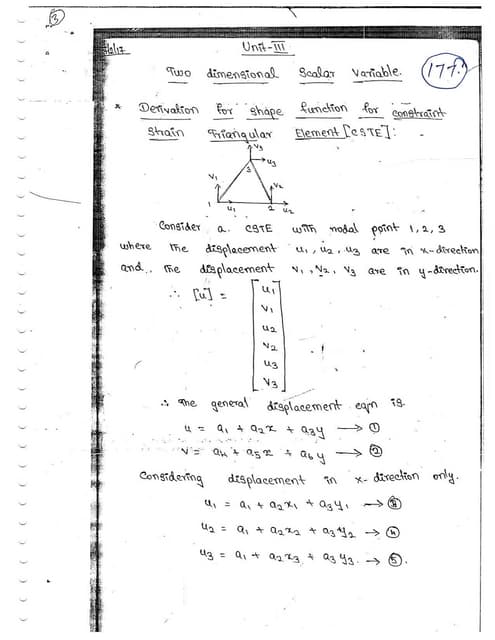 3
Unit-III
Two dimensional Scalar Variable.
177
* Derivation for shape function for constraint
strain Triangular Element [CSTE]:
V3
u3
3
V1
V2
1 u1 2 u2
Consider a CSTE with nodal point 1, 2, 3
where the displacement u1, u2, u3 are in x-direction
and the displacement V1, V2, V3 are in y-direction.
∴ [u] = [u1
V1
u2
V2
u3
V3]
∴ The general displacement eqn is
u = a1 + a2x + a3y → ①
V = a4 + a5x + a6y → ②
Considering displacement in x-direction only.
u1 = a1 + a2x1 + a3y1 → ③
u2 = a1 + a2x2 + a3y2 → ④
u3 = a1 + a2x3 + a3y3. → ⑤.